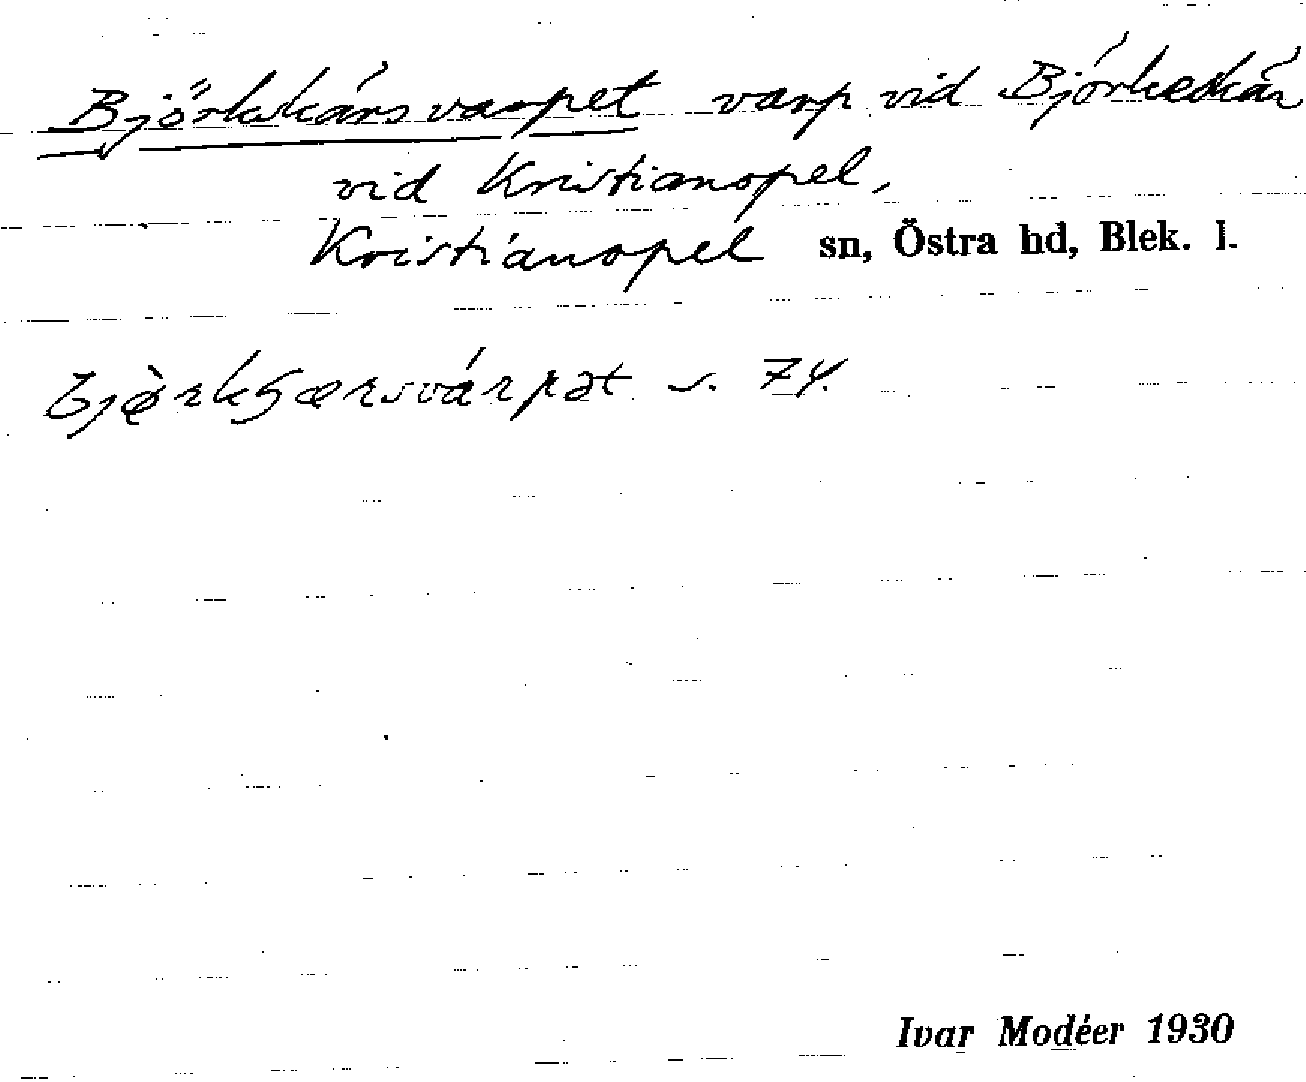 Björkskärsvarpet varp vid Björkeskär
vid Kristianopel,
Kristianopel sn, Östra hd, Blek. l.
s. 74.
Ivar Modéer 1930